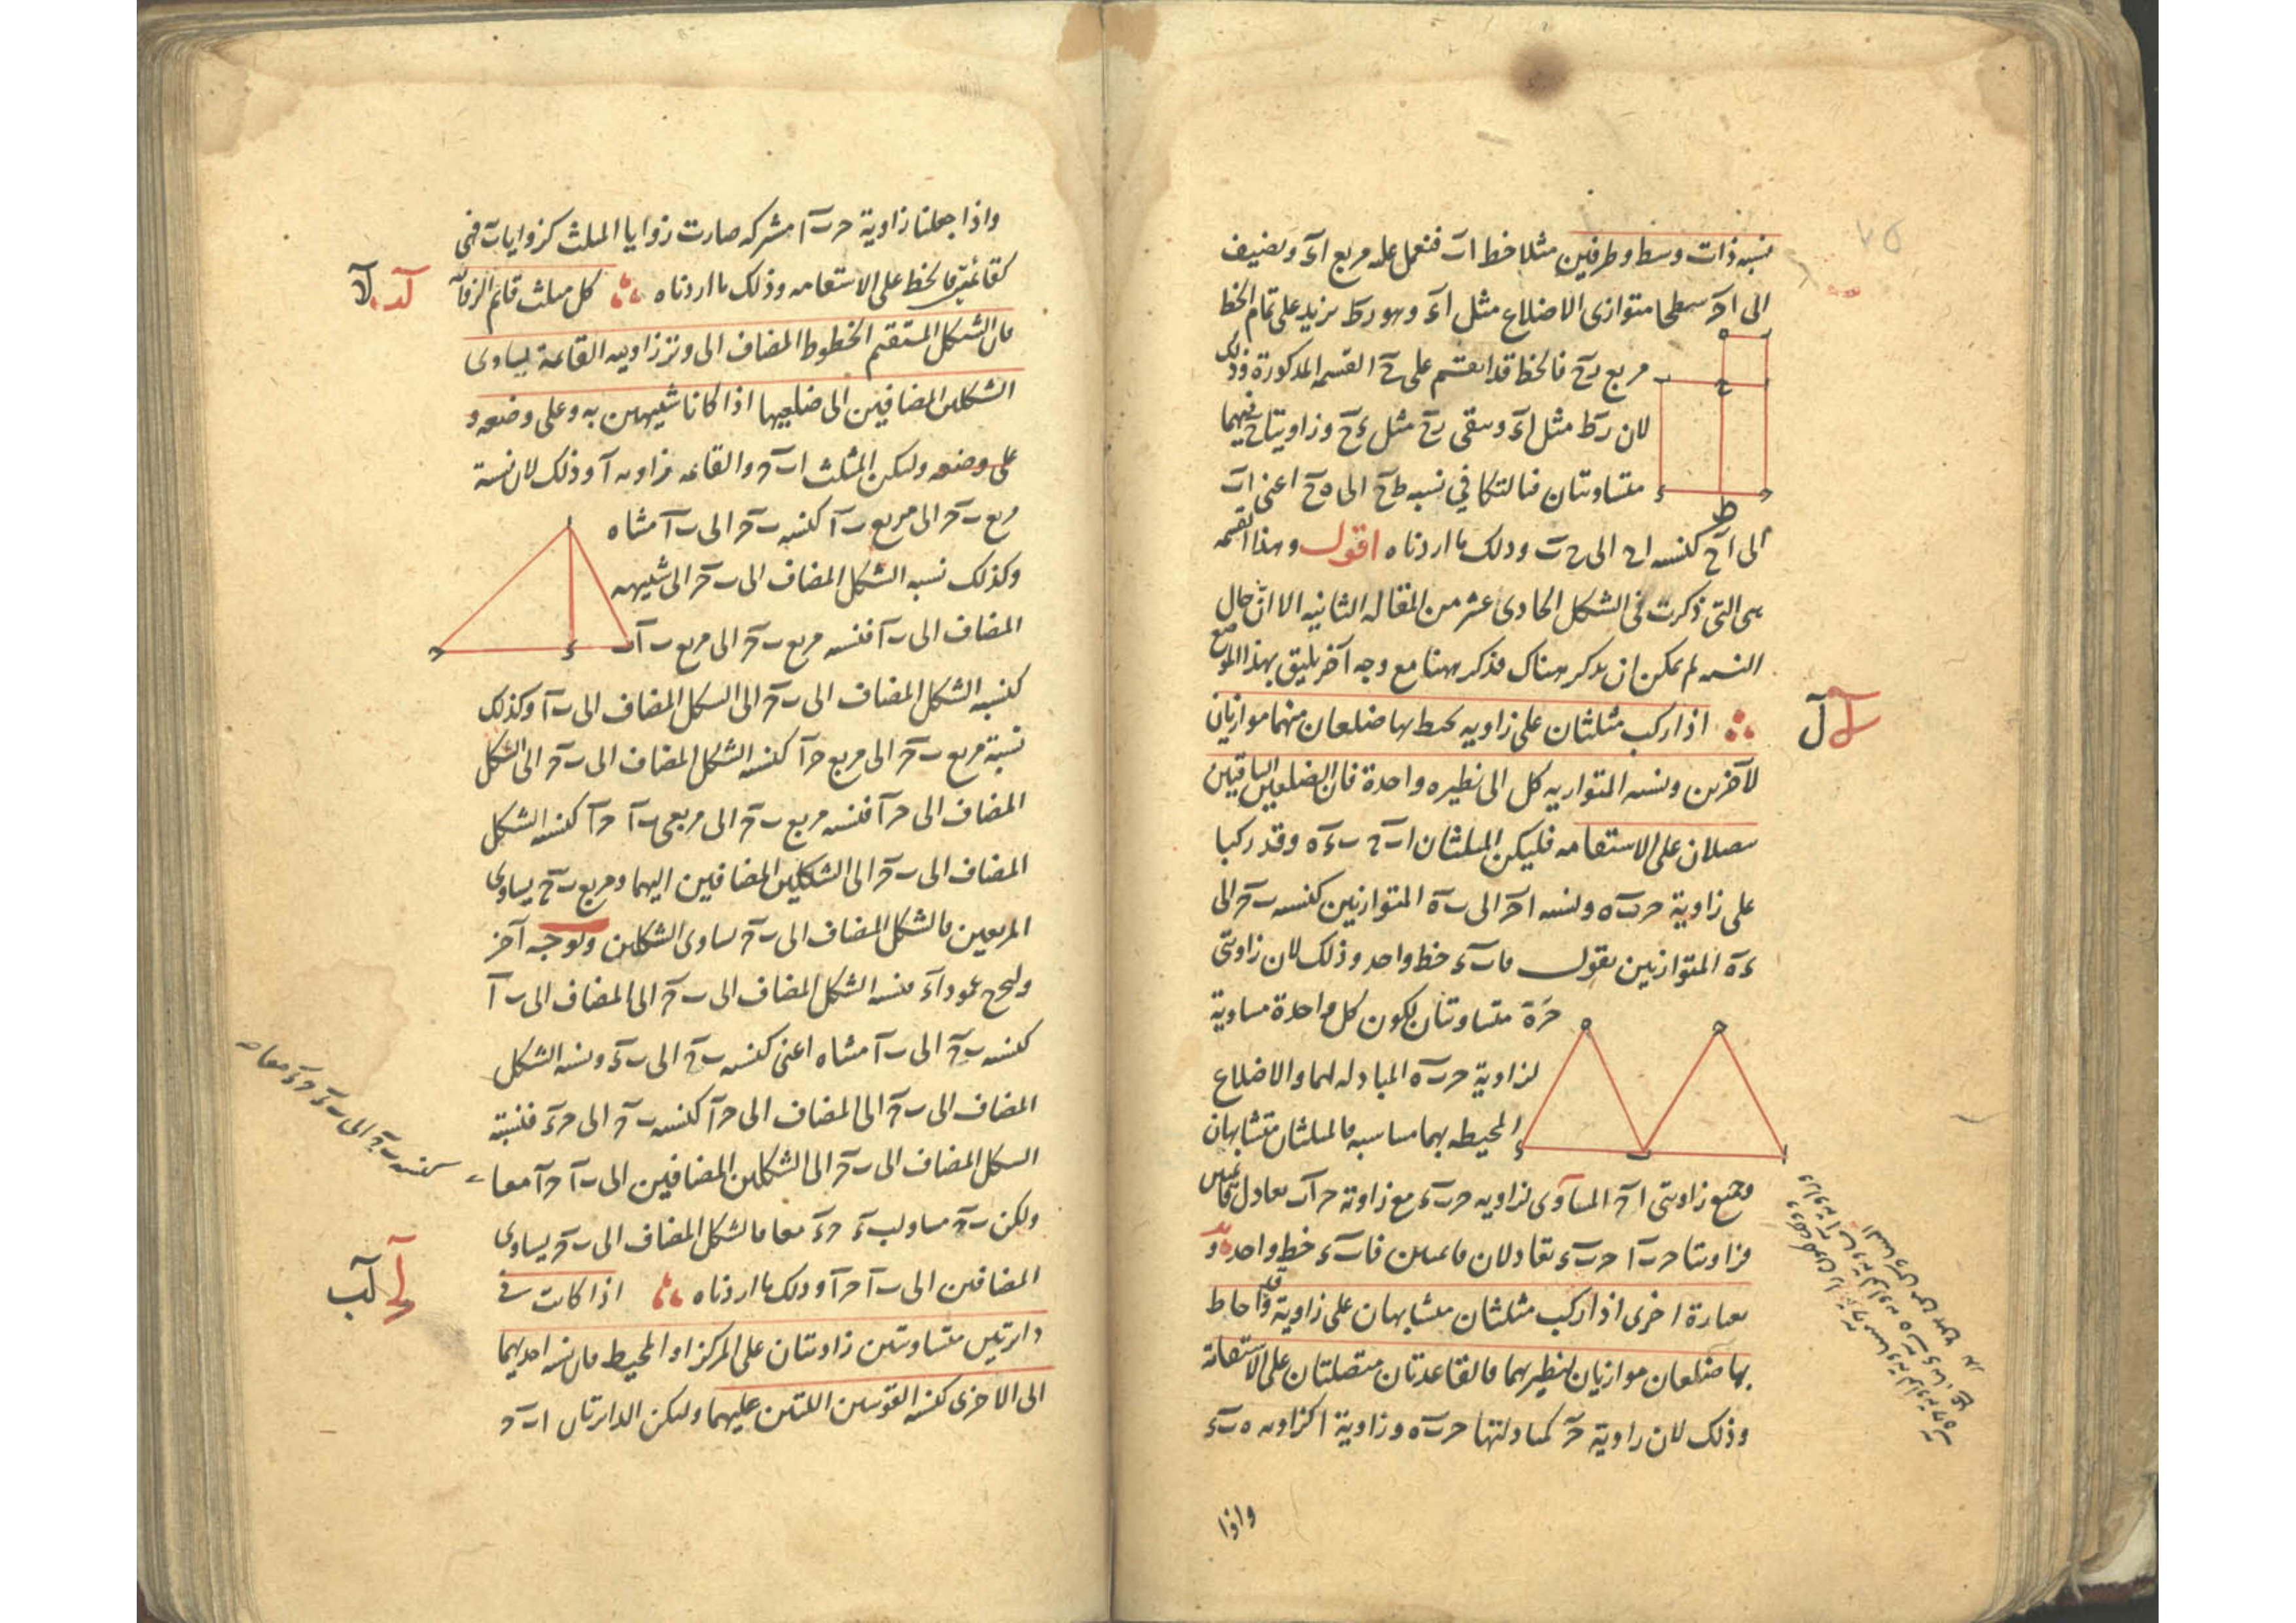 نسبه ذات وسط وطرفين مثلا خط ات فنعمل عليه مربع اء ونضيف
الى اح سطحا متوازى الاضلاع مثل اء وهو رط يزيد على تمام الخط
مربع رح فالخط قد انقسم على ح القسمه المذكورة وذلك
لان رط مثل اء وسقى رح مثل ءح وزاويتا ح فيهما
متساوتان فبالتكافى نسبه طح الى ه ح اعنى ات
الى اح كنسه اح الى ح ت وذلك ما اردناه اقول وهذا القسمه
هى التى ذكرت فى الشكل الحادى عشر من المقاله الثانيه الا ان حال
النسه لم يمكن ان يذكر هناك فذكر ههنا مع وجه آخر يليق بهذا الموضع
اذا ركب مثلثان على زاويه يحيط بها ضلعان منهما موازيان
للآخرين ونسه المتوازيه كل الى نظيره واحدة فان الضلعين الباقيين
يتصلان على الاستقامه فليكن المثلثان ا ب ح ب ء ه وقد ركبا
على زاوية ح ب ه ونسه ا ح الى ب ه المتوازيين كنسه ب ح الى
ء ه المتوازيين نقول فا ب ء خط واحد وذلك لان زاويتى
ح ه متساوتان لكون كل واحدة مساوية
لزاوية ح ب ه المبادله لهما والاضلاع
المحيطه بهما متناسبه فالمثلثان متشابهان
وجميع زاويتى ا ح المساوى لزاويه ح ب ء مع زاوية ح ب ا يعادل قائمتين
فزاويتا ح ب ا ح ب ء تعادلان قائمتين فا ب ء خط واحد و
بعبارة اخرى اذا ركب مثلثان متشابهان على زاوية قد احاط
بها ضلعان موازيان لنظيريهما فالقاعدتان متصلتان على الاستقامة
وذلك لان زاوية ح كمبادلتها ح ب ه وزاوية ا كزاويه ه ب ء
واذا
ل
واذا جعلنا زاوية ح ب ا مشتركه صارت زوايا المثلث كزوايا ب فهى
كقائمتين فالخط على الاستقامه وذلك ما اردناه كل مثلث قائم الزاويه
فان الشكل المستقيم الخطوط المضاف الى وتر زاويته القائمة يساوى
الشكلين المضافين الى ضلعيها اذا كانا شبيهين به وعلى وضعه و
على وضعه وليكن المثلث ا ب ح والقائمه زاويه ا وذلك لان نسبة
مربع ب ح الى مربع ب ا كنسه ب ح الى ب ا مثناه
وكذلك نسبه الشكل المضاف الى ب ح الى شبيهه
المضاف الى ب ا فنسه مربع ب ح الى مربع ب ا
كنسبه الشكل المضاف الى ب ح الى الشكل المضاف الى ب ا وكذلك
نسبة مربع ب ح الى مربع ح ا كنسه الشكل المضاف الى ب ح الى الشكل
المضاف الى ح ا فنسه مربع ب ح الى مربعى ب ا ح ا كنسه الشكل
المضاف الى ب ح الى الشكلين المضافين اليهما ومربع ب ح يساوى
المربعين فالشكل المضاف الى ب ح يساوى الشكلين وبوجه آخر
وليخرج عمود ا ء فنسه الشكل المضاف الى ب ح الى المضاف الى ب ا
كنسه ب ح الى ب ا مثناه اعنى كنسه ب ح الى ب ء ونسه الشكل
المضاف الى ب ح الى المضاف الى ح ا كنسه ب ح الى ح ء فنسبة
الشكل المضاف الى ب ح الى الشكلين المضافين الى ب ا ح ا معا
كنسه ب ح الى ب ء ح ء معا
ولكن ب ح مساو لب ء ح ء معا فالشكل المضاف الى ب ح يساوى
المضافين الى ب ا ح ا وذلك ما اردناه اذا كانت فى
دائرتين متساوتين زاويتان على المركز او المحيط فان نسه احديهما
الى الاخرى كنسه القوسين اللتين عليهما وليكن الدائرتان ا ب ح
لب